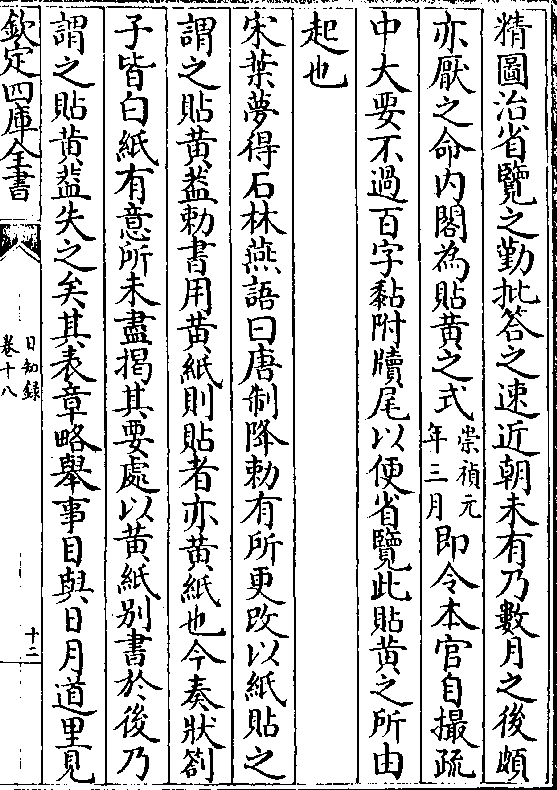 精圖治省覽之勤批答之速近朝未有乃數月之後頗
亦厭之命内閣為貼黄之式崇禎元年三月即令本官自撮疏
中大要不過百字黏附牘尾以便省覽此貼黄之所由
起也
宋葉夢得石林燕語曰唐制降勅有所更改以紙貼之
謂之貼黄葢勅書用黄紙則貼者亦黄紙也今奏狀劄
子皆白紙有意所未盡揭其要處以黄紙别書於後乃
謂之貼黄葢失之矣其表章略舉事目與日月道里見
欽定四庫全書
日知録
卷十八
十二